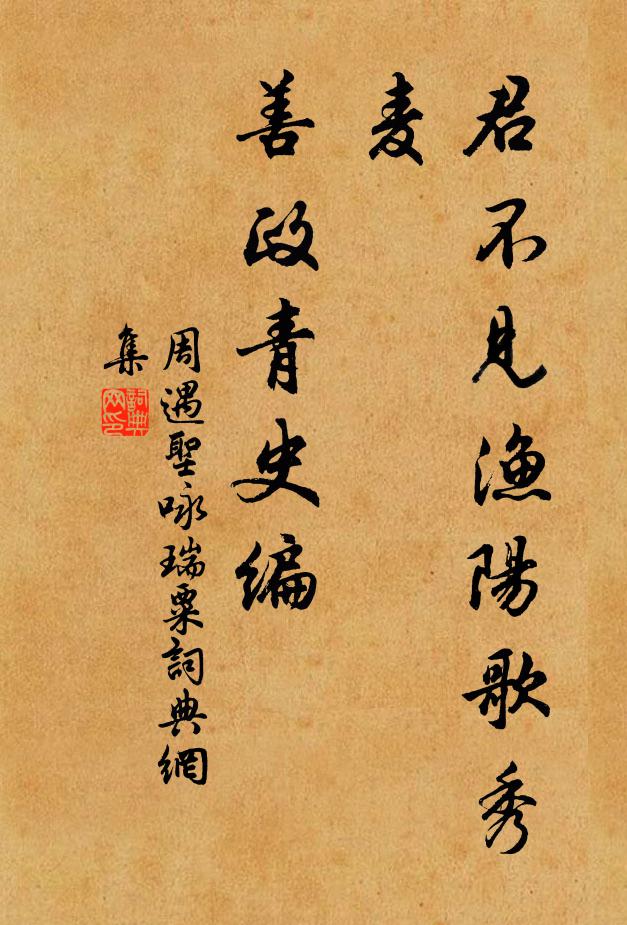 君不見漁陽歌秀
麦
善政青史編
周遇聖咏瑞粟詞典網
集
詞典
网印